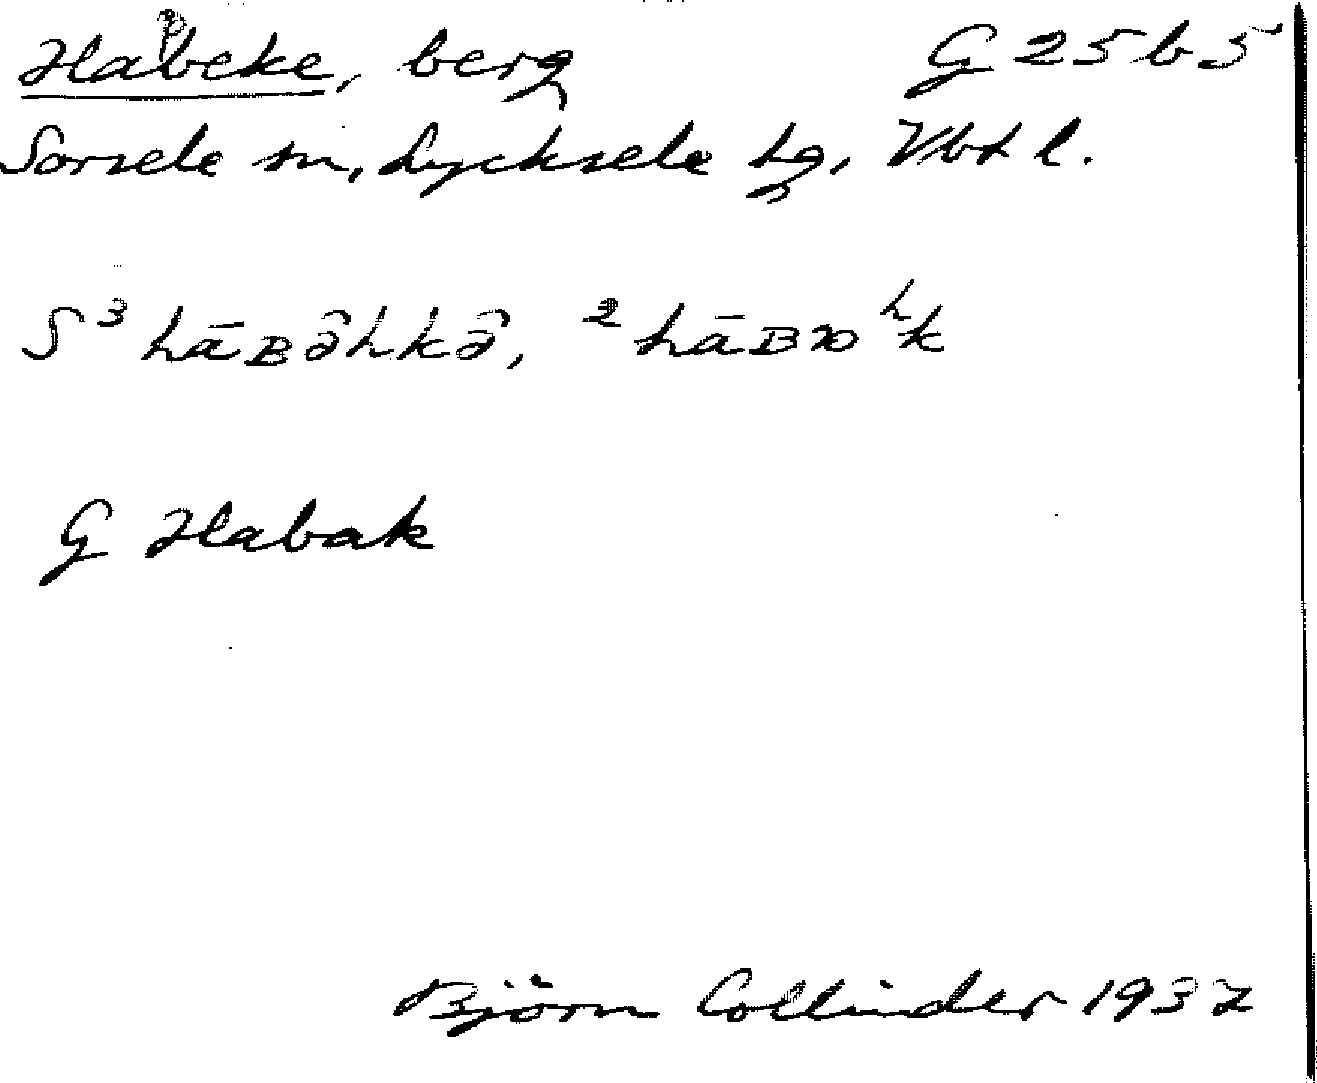 Habeke, berg G 25 b 5
Sorsele sn, Lycksele lg, Vbt l.
S ³hāʙə̂hkə̂, ²hāʙɷʰk
G Habak
Björn Collinder 1937